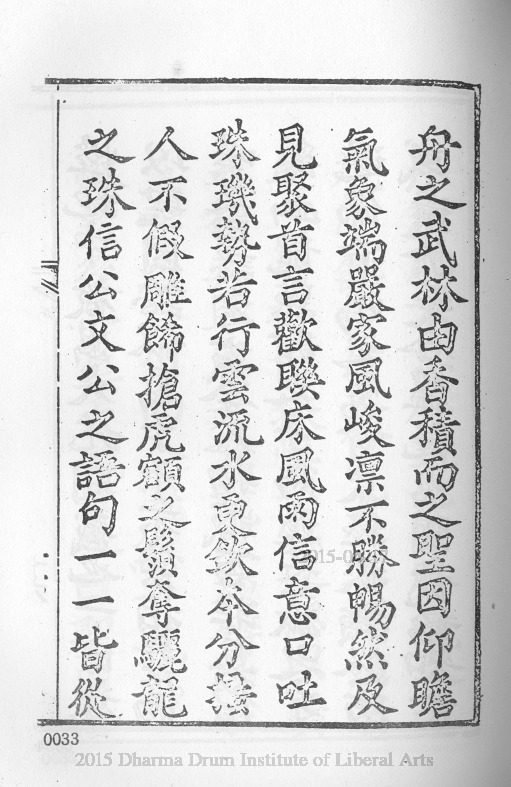 舟之武林由香積而之聖因仰瞻
氣象端嚴家風峻凛不勝惕然及
見聚首言歡聯床風雨信意口吐
珠璣勢若行雲流水更欽本分接
人不假雕飾搶虎頷之鬚奪驪龍
之珠信公文公之語句一一皆從
0033
2015 Dharma Drum Institute of Liberal Arts